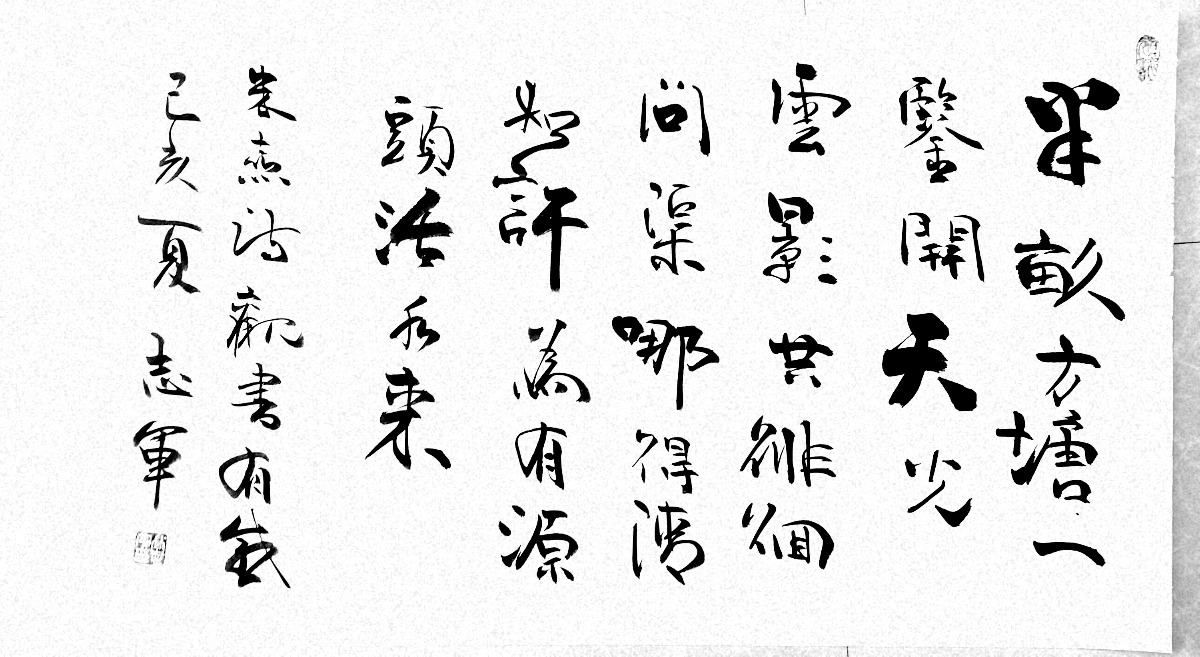 半畝方塘一
鑒開天光
雲影共徘徊
問渠哪得清
如許為有源
頭活水来
朱熹詩觀書有感
己亥夏志軍